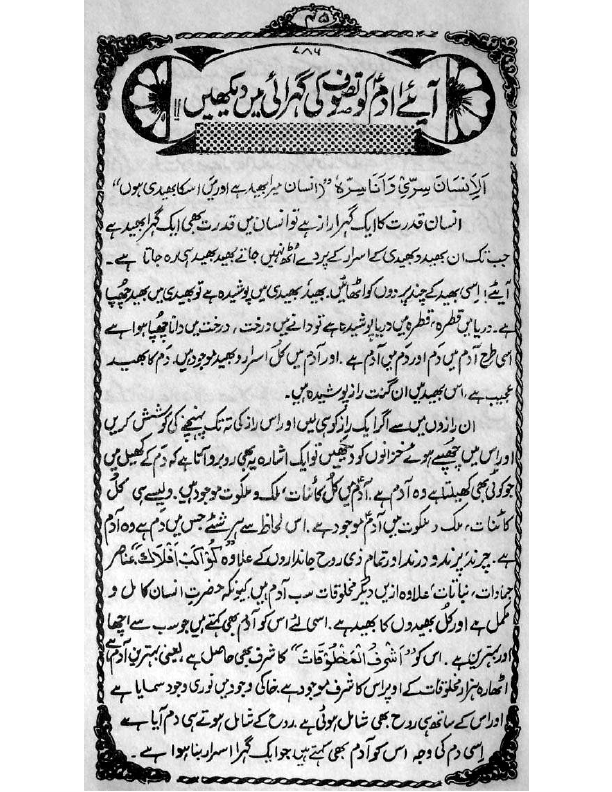 ۴۵
۷۸۶
آیئے آدمؑ کو تصوّف کی گہرائی میں دیکھیں!!
اَلْاِنسَانَ سِرِّیْ وَاَنَا سِرِّہٗ "(انسان میرا بھید ہے اور میں اسکا بھیدی ہوں"
انسان قدرت کا ایک گہرا راز ہے تو انسان میں قدرت بھی ایک گہرا بھید ہے
جب تک ان بھید و بھیدی کے اسرار کے پردے اُٹھ نہیں جاتے بھید بھید ہی رہ جاتا ہے۔
آیئے! اسی بھید کے چند پردوں کو اٹھائیں۔ بھید بھیدی میں پوشیدہ ہے تو بھیدی میں بھید چُھپا
ہے۔ دریا میں قطرہ، قطرہ میں دریا پوشیدہ ہے تو دانے میں درخت، درخت میں دانا چھپا ہوا ہے
اسی طرح آدم میں دَم اور دَم میں آدم ہے۔ اور آدم میں کل اسرار و بھید موجود ہیں۔ دَم کا بھید
عجیب ہے، اس بھید میں ان گنت راز پوشیدہ ہیں۔
ان رازوں میں سے اگر ایک راز کو ہی لیں اور اس راز کی تہ تک پہنچنے کی کوشش کریں
اور اس میں چھپے ہوئے خزانوں کو دیکھیں تو ایک اشارہ یہ بھی رو بر آتا ہے کہ دَم کے کھیل میں
جو کوئی بھی کھیلتا ہے وہ آدم ہے۔ آدمؑ میں کل کائنات، ملک و ملکوت موجود ہیں۔ ویسے ہی کل
کائنات، ملک و ملکوت میں آدمؑ موجود ہے۔ اس لحاظ سے ہر شئے جس میں دم ہے وہ آدم
ہے۔ چرند پرند و درند اور تمام ذی روح جانداروں کے علاوہ "کَوَاکَبْ اَفْلَاکْ" عناصر
جمادات، نباتات علاوہ ازیں دیگر مخلوقات سب آدم ہیں۔ کیونکہ حضرتِ انسان کامل و
مکمل ہے اور کل بھیدوں کا بھید ہے۔ اسی لئے اس کو آدم بھی کہتے ہیں جو سب سے اچھا
اور بہترین ہے۔ اس کو "اَشْرَفُ الْمَخْلُوْقَاتْ" کا شرف بھی حاصل ہے، یعنی بہترین آدم ہے
اٹھارہ ہزار مخلوقات کے اوپر اس کا شرف موجود ہے۔ خاکی وجود میں نوری وجود سمایا ہے
اور اس کے ساتھ ہی روح بھی شامل ہوئی ہے۔ روح کے شامل ہوتے ہی دم آیا ہے
اِسی دم کی وجہ اس کو آدم بھی کہتے ہیں جو ایک گہرا اسرار بنا ہوا ہے۔